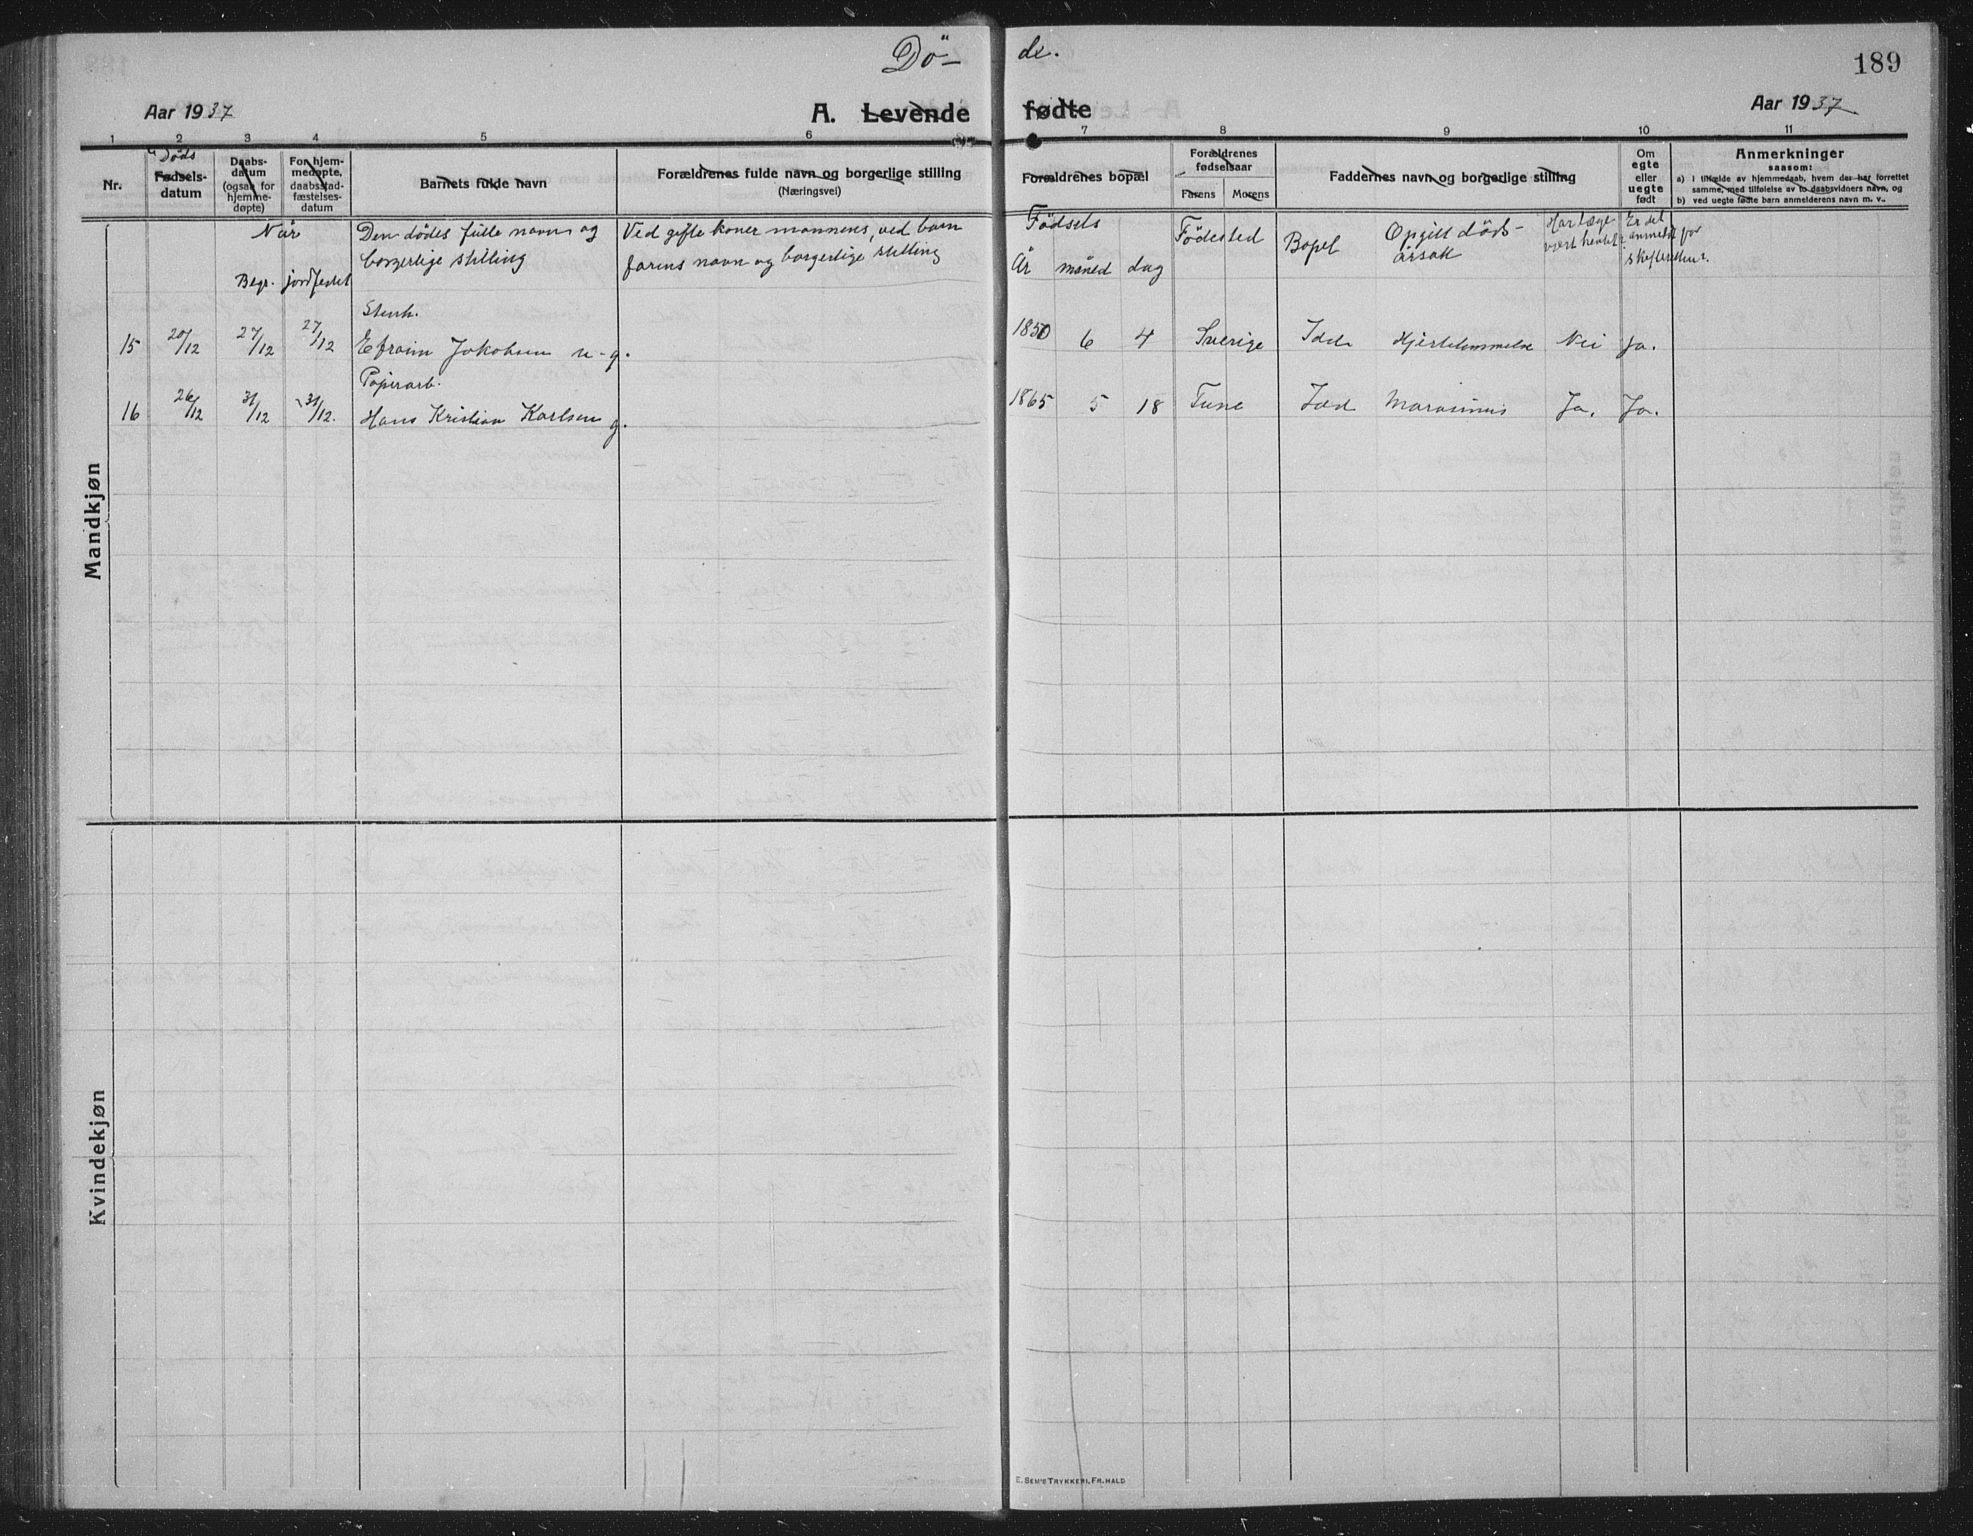 Dö- de.
189
Aar 1937
A. Levende fødte
Aar 1937
1 2 3 4 5 6 7 8 9 10 11
Nr.
Døds
Fødsels-
datum
Daabs-
datum
(ogsaa for
hjemme-
døpte)
For hjem-
medøpte,
daabsstad-
fæstelses-
datum
Barnets fulde navn
Forældrenes fulde navn og borgerlige stilling
(Næringsvei)
Forældrenes bopæl
Forældrenes
fødselsaar
Farens Morens
Faddernes navn og borgerlige stilling
Om
egte
eller
uegte
født
Anmerkninger
saasom:
a) i tilfælde av hjemmedaab, hvem der har forrettet
samme, med tilføielse av to daabsvidners navn, og
b) ved uegte fødte barn anmelderens navn m. v.
Når
Begr. jordfestet
Den dødes fulle navn og
borgerlige stilling
Ved gifte koner mannens, ved barn
farens navn og borgerlige stilling
Fødsels
År måned dag
Fødested
Bopel
Opgitt døds-
årsak
Har læge
vært hentet?
Er det
anmeldt for
skifteretten?
Mandkjøn
Stenh.
15 20/12 27/12 27/12 Efraim Jakobsen u-g. 1850 6 4 Sverige Idd Hjertelammelse Nei Ja.
Papirarb.
16 26/12 31/12 31/12. Hans Kristian Karlsen g. 1865 5 18 Tune Idd Marasmus Ja. Ja.
Kvindekjøn
E. SEM'S TRYKKERI, FR.HALD